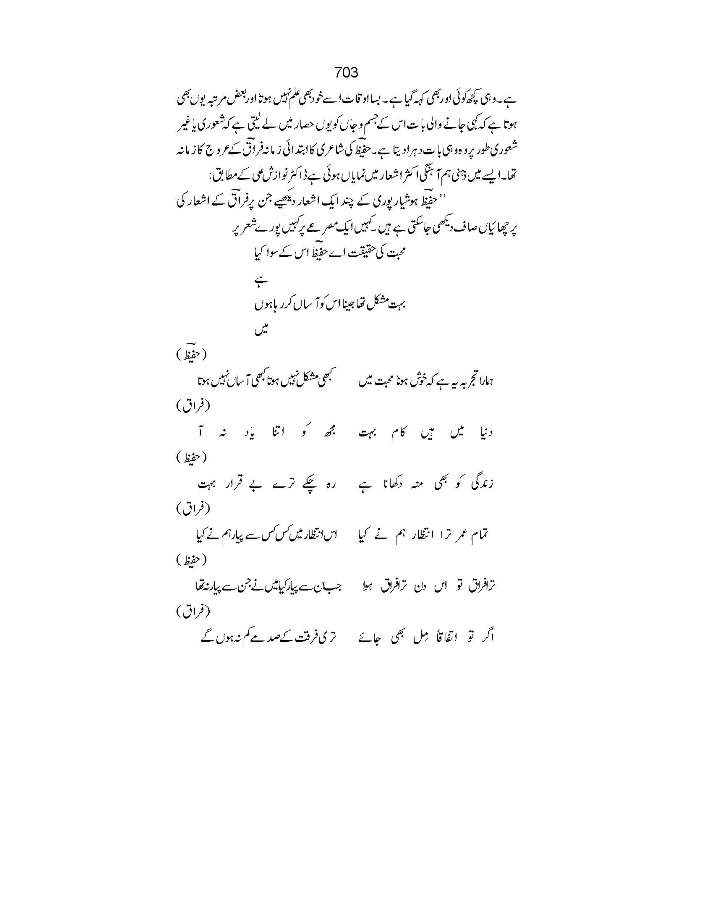 703
ہے۔ وہی کچھ کوئی اور بھی کہہ گیا ہے۔ بسا اوقات اسے خود بھی علم نہیں ہوتا اور بعض مرتبہ یوں بھی
ہوتا ہے کہ کہی جانے والی بات اس کے جسم و جاں کو یوں حصار میں لے لیتی ہے کہ شعوری یا غیر
شعوری طور پر وہ وہی بات دہرا دیتا ہے۔ حفیظؔ کی شاعری کا ابتدائی زمانہ فراقؔ کے عروج کا زمانہ
تھا۔ ایسے میں ذہنی ہم آہنگی اکثر اشعار میں نمایاں ہوئی ہے ڈاکٹر نوازش علی کے مطابق:
’’حفیظؔ ہوشیار پوری کے چند ایک اشعار دیکھیے جن پر فراقؔ کے اشعار کی
پرچھائیاں صاف دیکھی جاسکتی ہیں۔ کہیں ایک مصرعے پر کہیں پورے شعر پر
محبت کی حقیقت اے حفیظؔ اس کے سوا کیا
ہے
بہت مشکل تھا جینا اس کو آساں کرر ہا ہوں
میں
(حفیظؔ)
ہمارا تجربہ یہ ہے کہ خوش ہونا محبت میں کبھی مشکل نہیں ہوتا کبھی آساں نہیں ہوتا
(فراق)
دنیا میں ہیں کام بہت مجھ کو اتنا یاد نہ آ
(حفیظ)
زندگی کو بھی منہ دکھانا ہے رہ چکے ترے بے قرار بہت
(فراق)
تمام عمر ترا انتظار ہم نے کیا اس انتظار میں کس کس سے پیار ہم نے کیا
(حفیظ)
ترا فراق تو اس دن ترا فراق ہوا جب ان سے پیار کیا میں نے جن سے پیار نہ تھا
(فراق)
اگر تو اتفاقاً مِل بھی جائے تری فرقت کے صدمے کم نہ ہوں گے